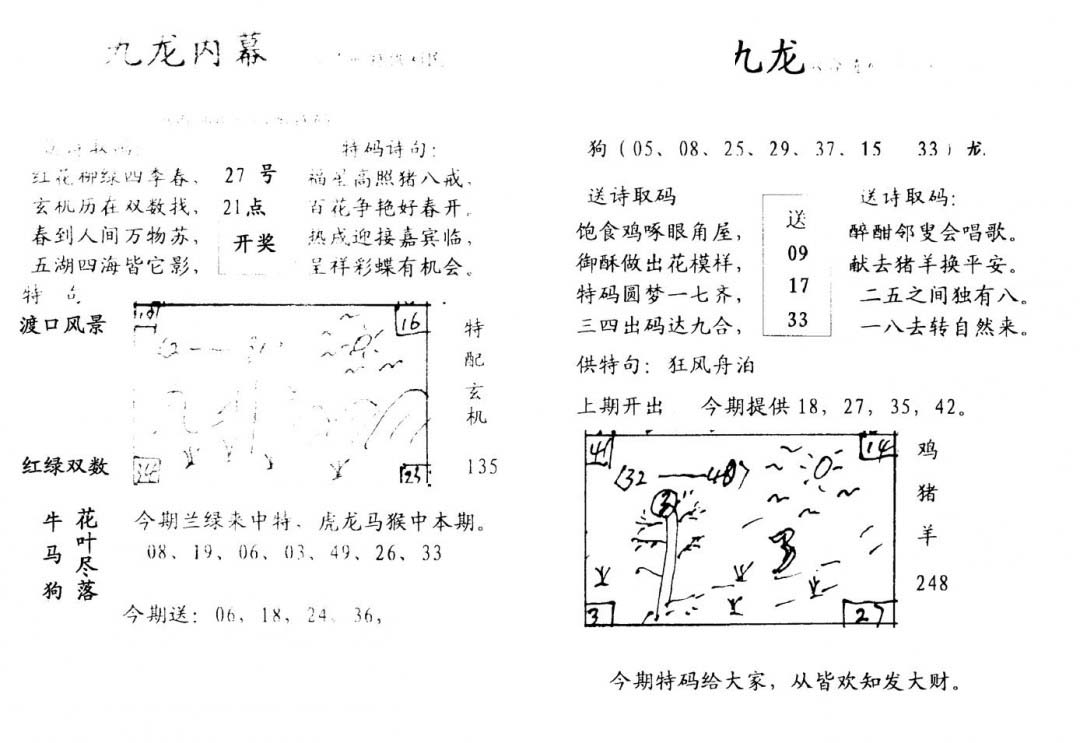 九龙内幕
特码诗句：
红花柳绿四季春，
玄机历在双数找，
春到人间万物苏，
五湖四海皆它影，
27 号
21点
开奖
福星高照猪八戒，
百花争艳好春开。
热戌迎接嘉宾临，
呈祥彩蝶有机会。
特 句
渡口风景
红绿双数
16
23
特配玄机
135
牛马狗
花叶尽落
今期兰绿来中特、虎龙马猴中本期。
08、19、06、03、49、26、33
今期送：06，18，24、36，
九龙
狗（05、08、25、29、37．15 33）龙．
送诗取码
饱食鸡啄眼角屋，
御酥做出花模样，
特码圆梦一七齐，
三四出码达九合，
送
09
17
33
送诗取码：
醉酣邻叟会唱歌。
献去猪羊换平安。
二五之间独有八。
一八去转自然来。
供特句：狂风舟泊
上期开出 今期提供 18，27，35，42。
41
14
32——48
3
27
鸡猪羊
248
今期特码给大家，从皆欢知发大财。